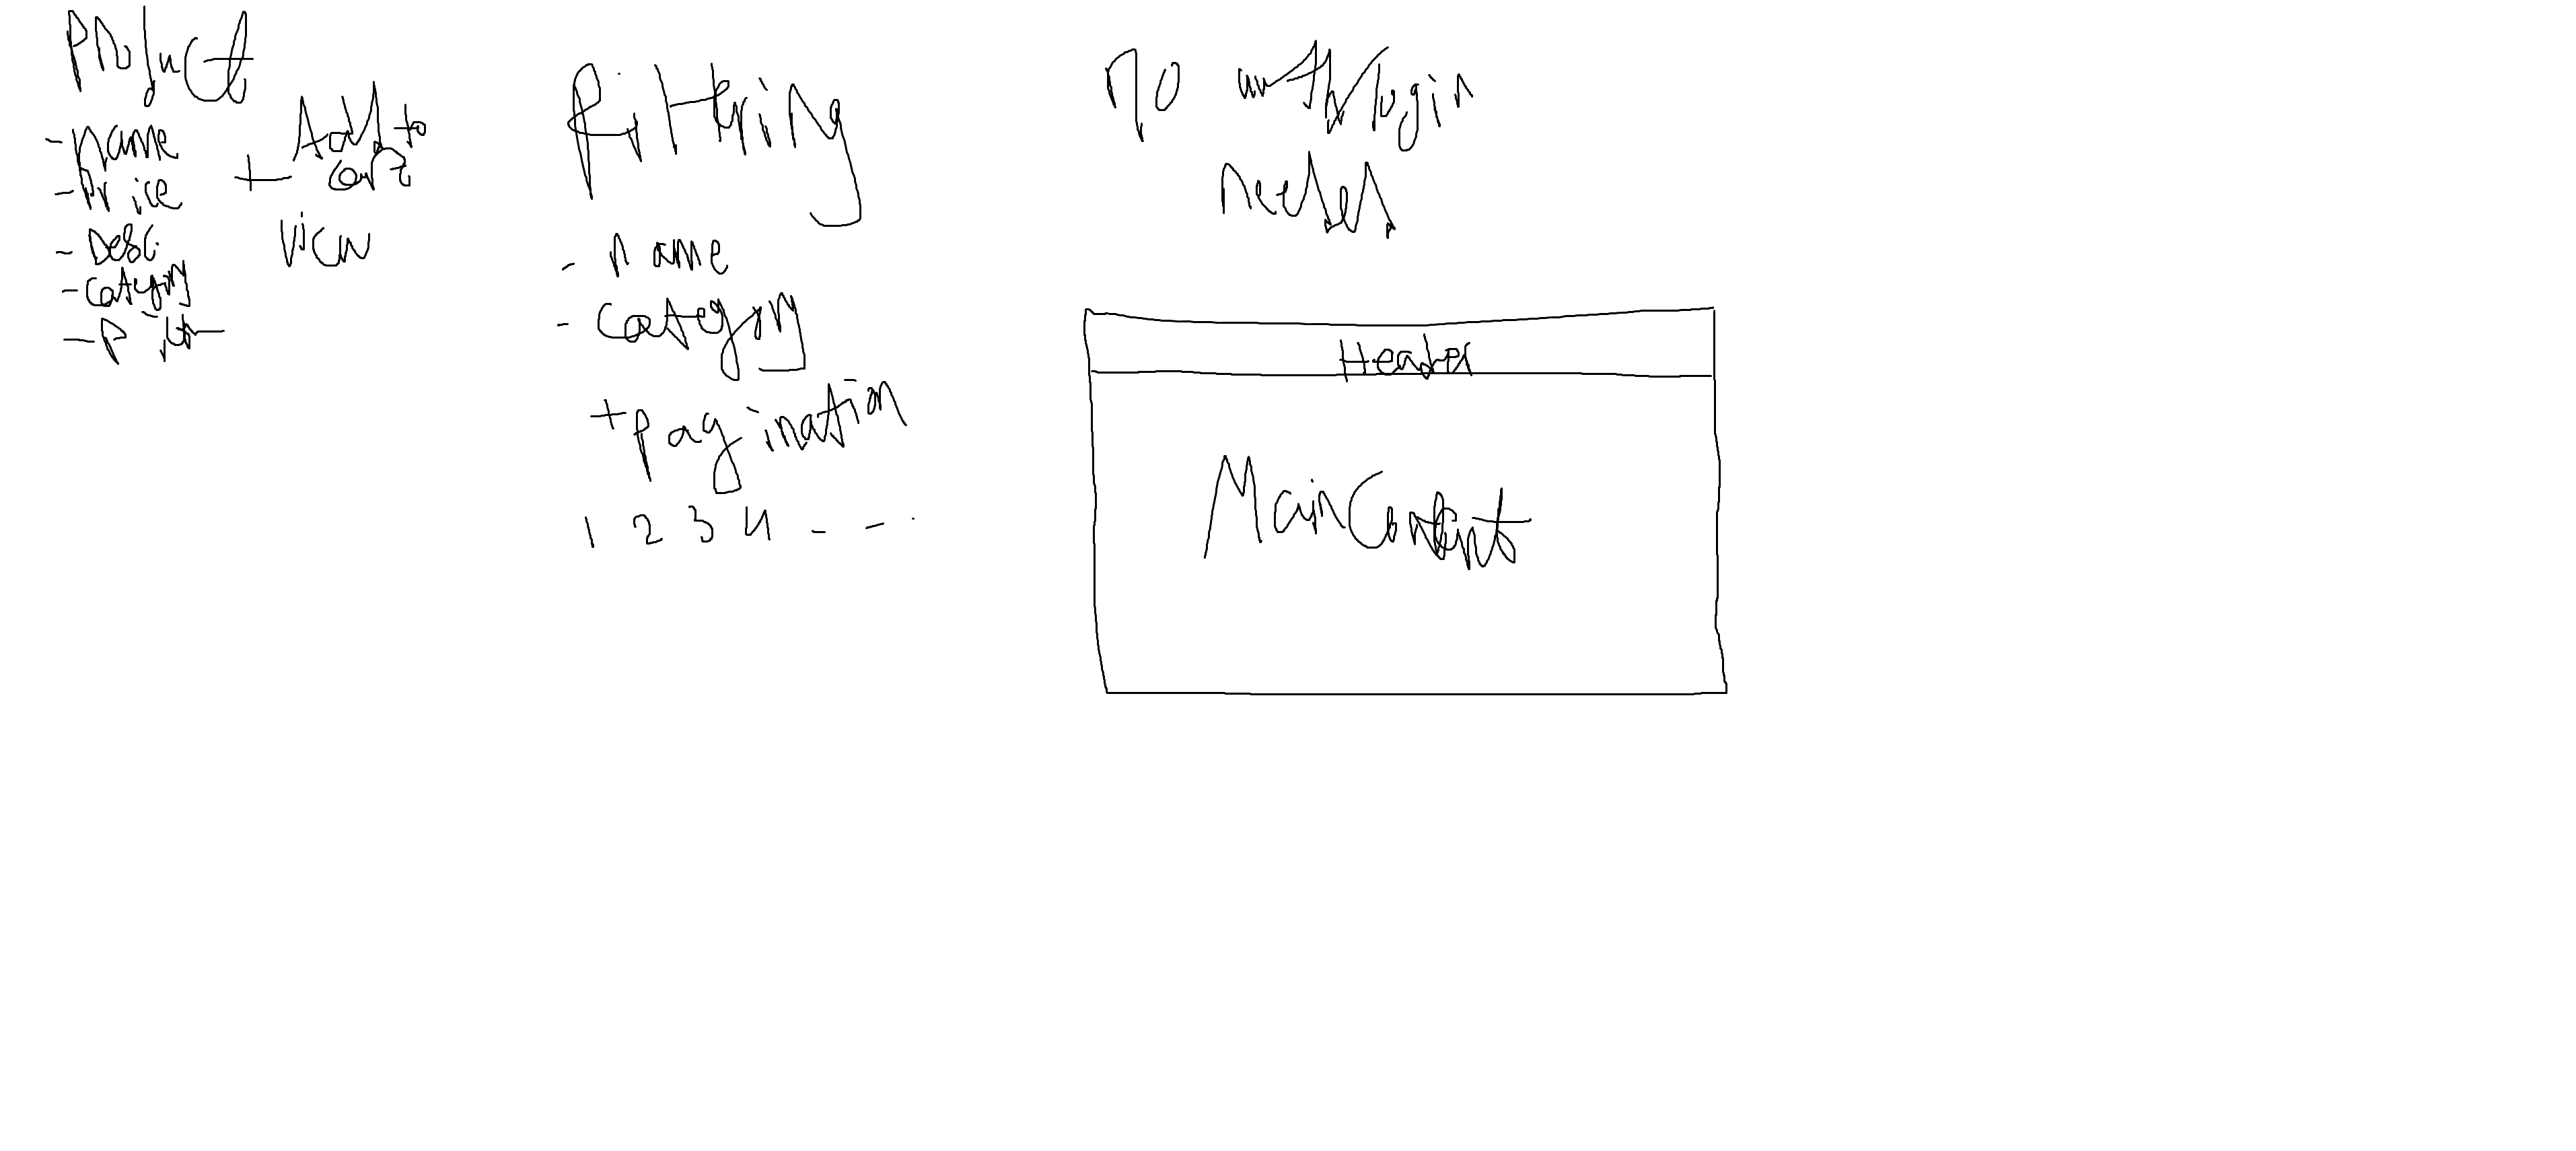 Product
- name
- Price
- Desc.
- category
+ Add to
cart
view
filtering
- name
- category
+ pagination
1 2 3 4 - - .
no auth/login
needed
Header
Main Content